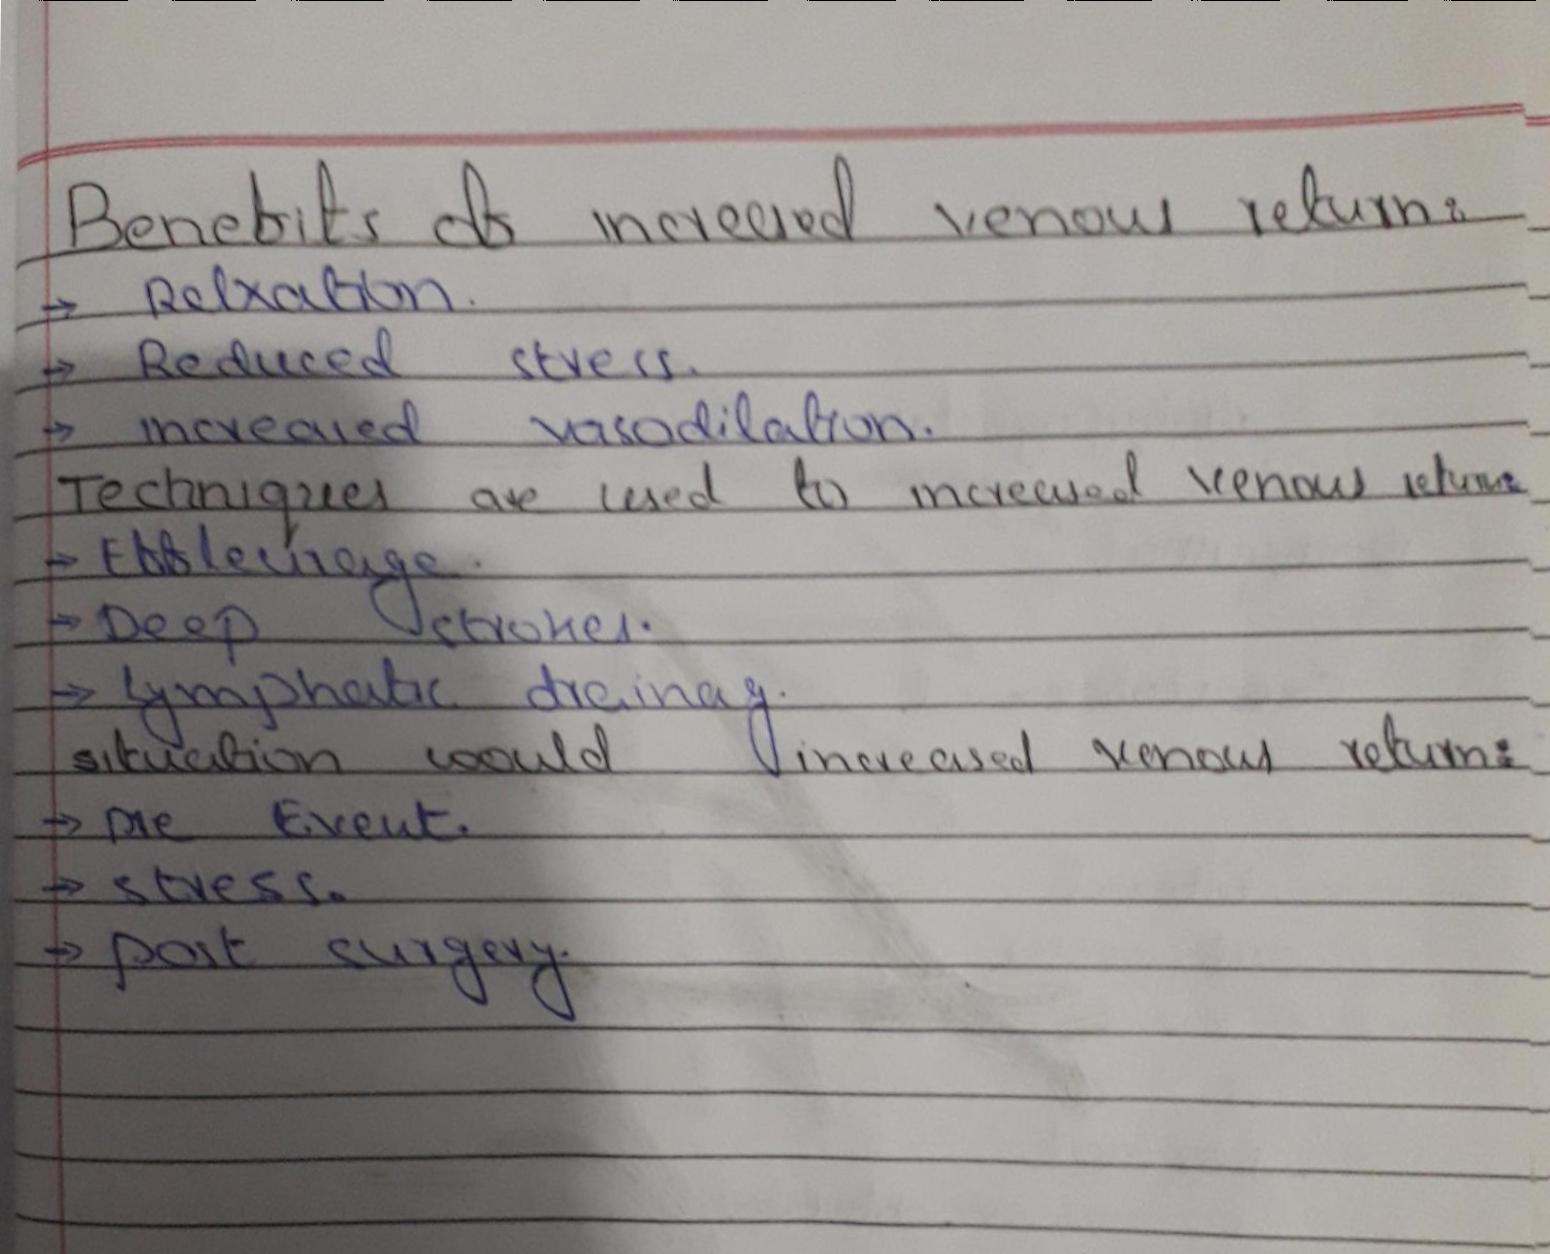 Benefits of increased venous return:
→ Relxation.
→ Reduced stress.
→ increased vasodilation.
Techniques are used to increased venous return:
→ Effleurage.
→ Deep strokes.
→ Lymphatic drainag.
situation would increased venous return:
→ pre Event.
→ stress.
→ post surgery.